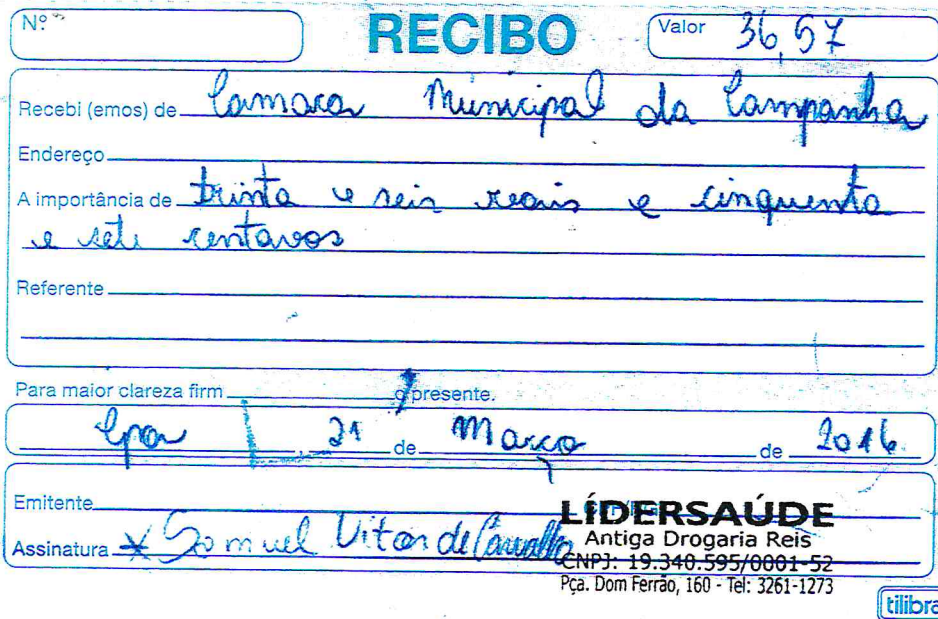 Nº RECIBO Valor 36,57
Recebi (emos) de Camara Municipal da Campanha
Endereço
A importância de trinta e seis reais e cinquenta
e sete centavos
Referente
Para maior clareza firm o presente.
Cpa 21 de Março de 2016.
Emitente
LÍDERSAÚDE
Antiga Drogaria Reis
Assinatura Samuel Vitor de Carvalho
CNPJ: 19.340.595/0001-52
Pça. Dom Ferrão, 160 - Tel: 3261-1273
tilibra